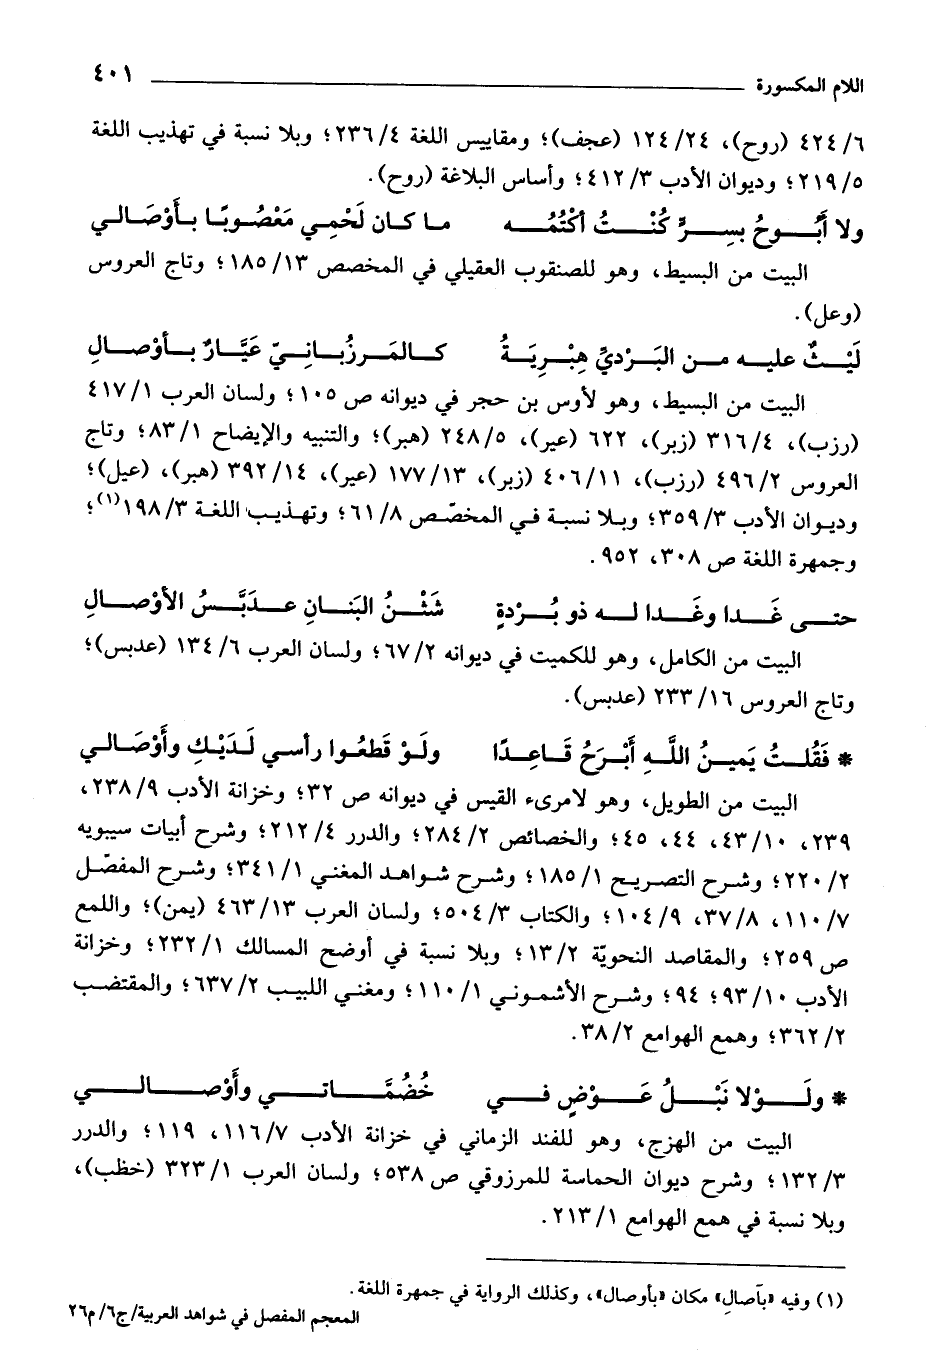 اللام المكسورة ٤٠١
٦/ ٤٢٤ (روح)، ٢٤/ ١٢٤ (عجف)؛ ومقاييس اللغة ٤/ ٢٣٦؛ وبلا نسبة في تهذيب اللغة
٥/ ٢١٩؛ وديوان الأدب ٣/ ٤١٢؛ وأساس البلاغة (روح).
ولا أَبُوحُ بِسِرٍّ كُنْتُ أكْتُمُه ما كان لَحْمِي مَعْصُوبًا بأَوْصَالي
البيت من البسيط، وهو للصنقوب العقيلي في المخصص ١٣/ ١٨٥؛ وتاج العروس
(وعل).
لَيْثٌ عليه من البَرْديِّ هِبْرِيَةُ كالمَرزُبانِيّ عَيَّارٌ بأوْصالِ
البيت من البسيط، وهو لأوس بن حجر في ديوانه ص ١٠٥؛ ولسان العرب ١/ ٤١٧
(رزب)، ٤/ ٣١٦ (زبر)، ٦٢٢ (عير)، ٥/ ٢٤٨ (هبر)؛ والتنبيه والإيضاح ١/ ٨٣؛ وتاج
العروس ٢/ ٤٩٦ (رزب)، ١١/ ٤٠٦ (زبر)، ١٣/ ١٧٧ (عير)، ١٤/ ٣٩٢ (هبر)، (عيل)؛
وديوان الأدب ٣/ ٣٥٩؛ وبلا نسبة في المخصّص ٨/ ٦١؛ وتهذيب اللغة ٣/ ١٩٨(١)؛
وجمهرة اللغة ص ٣٠٨، ٩٥٢.
حتى غَدا وغَدا له ذو بُرْدةٍ شَثْنُ البَنانِ عدَبَّسُ الأوْصالِ
البيت من الكامل، وهو للكميت في ديوانه ٢/ ٦٧؛ ولسان العرب ٦/ ١٣٤ (عدبس)؛
وتاج العروس ١٦/ ٢٣٣ (عدبس).
* فَقُلتُ يَمينُ اللَّهِ أبْرَحُ قَاعِدًا ولَوْ قَطعُوا رأسي لَدَيْكِ وأَوْصَالي
البيت من الطويل، وهو لامرىء القيس في ديوانه ص ٣٢؛ وخزانة الأدب ٩/ ٢٣٨،
٢٣٩، ١٠/ ٤٣، ٤٤، ٤٥؛ والخصائص ٢/ ٢٨٤؛ والدرر ٤/ ٢١٢؛ وشرح أبيات سيبويه
٢/ ٢٢٠؛ وشرح التصريح ١/ ١٨٥؛ وشرح شواهد المغني ١/ ٣٤١؛ وشرح المفصّل
٧/ ١١٠، ٨/ ٣٧، ٩/ ١٠٤؛ والكتاب ٣/ ٥٠٤؛ ولسان العرب ١٣/ ٤٦٣ (يمن)؛ واللمع
ص ٢٥٩؛ والمقاصد النحويّة ٢/ ١٣؛ وبلا نسبة في أوضح المسالك ١/ ٢٣٢؛ وخزانة
الأدب ١٠/ ٩٣؛ ٩٤؛ وشرح الأشموني ١/ ١١٠؛ ومغني اللبيب ٢/ ٦٣٧؛ والمقتضب
٢/ ٣٦٢؛ وهمع الهوامع ٢/ ٣٨.
* ولَوْلا نَبْلُ عَوْضٍ في خُضُمَّاتي وأَوْصالي
البيت من الهزج، وهو للفند الزماني في خزانة الأدب ٧/ ١١٦، ١١٩؛ والدرر
٣/ ١٣٢؛ وشرح ديوان الحماسة للمرزوقي ص ٥٣٨؛ ولسان العرب ١/ ٣٢٣ (خظب)،
وبلا نسبة في همع الهوامع ١/ ٢١٣.
(١) وفيه «بآصالِ» مكان «بأوصال»، وكذلك الرواية في جمهرة اللغة.
المعجم المفصل في شواهد العربية/ ج٦/ م٢٦